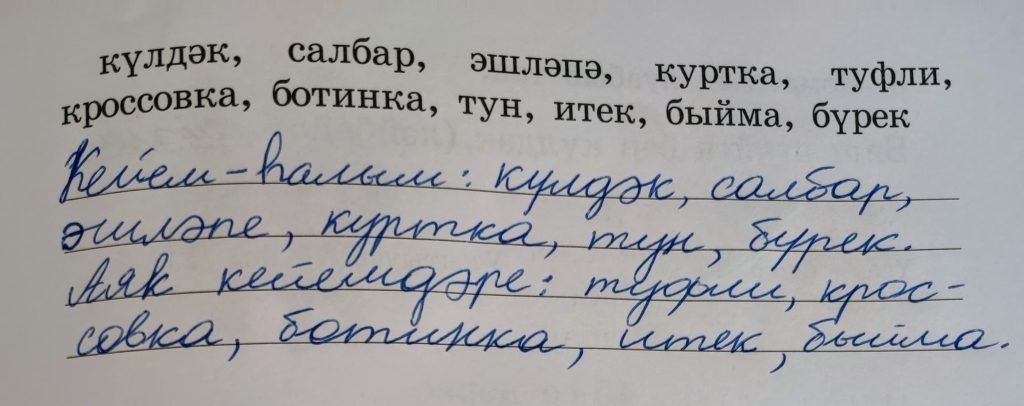 күлдәк, салбар, эшләпә, куртка, туфли,
кроссовка, ботинка, тун, итек, быйма, бүрек
Кейем-һалым: күлдәк, салбар,
эшләпе, куртка, тун, бүрек.
Аяк кейемдәре: туфли, крос-
совка, ботинка, итек, быйма.